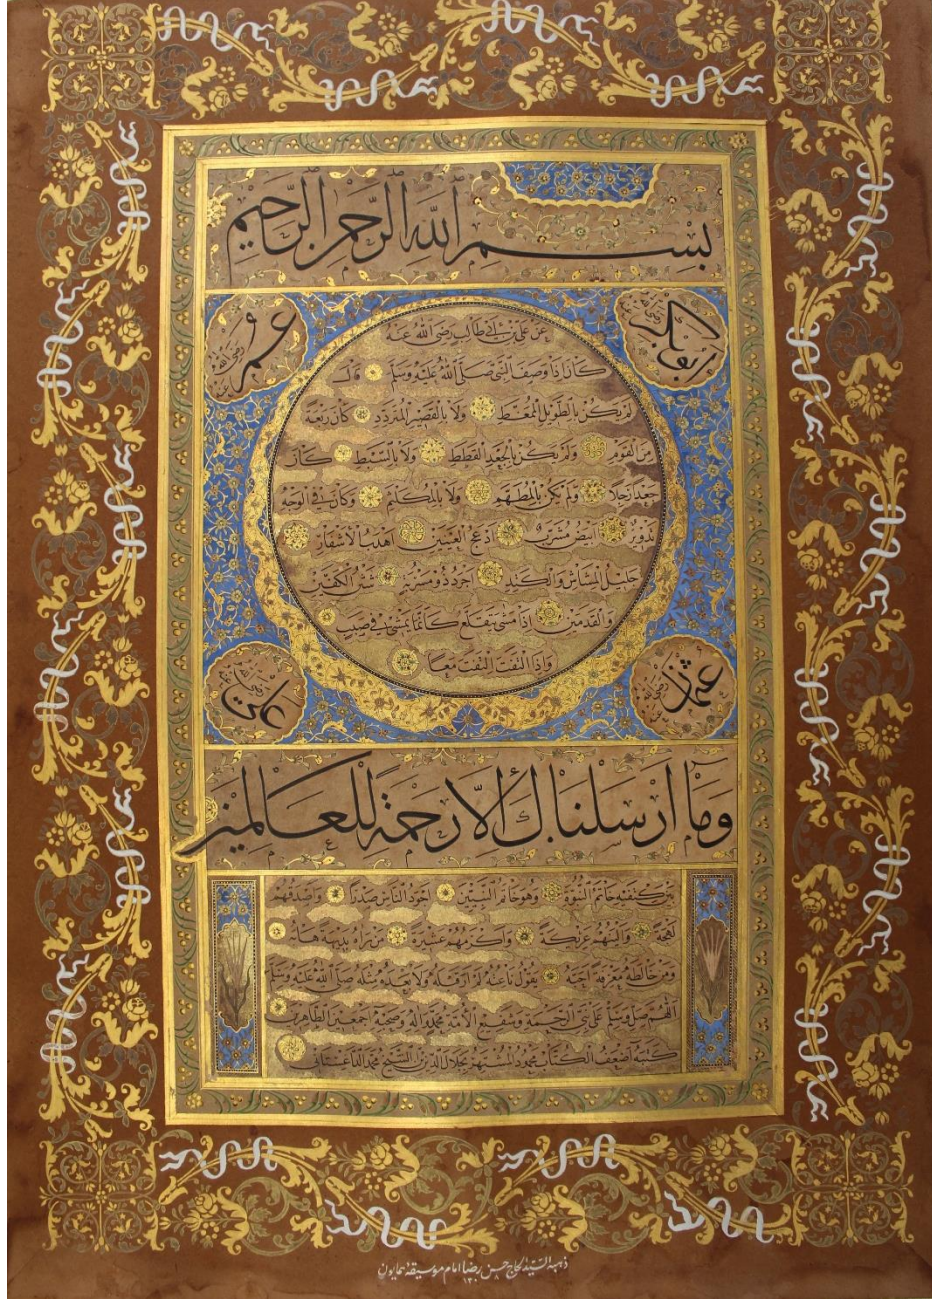 بِسْمِ اللّٰهِ الرَّحْمٰنِ الرَّحِيمِ
ابو بكر رضي الله عنه
عمر رضي الله عنه
عن علي بن ابي طالب رضى الله عنه
كان اذا وصف النبي صلى الله عليه وسلم قال
لم يكن بالطويل الممغط ولا بالقصير المتردد كان ربعة
من القوم ولم يكن بالجعد القطط ولا بالسبط كان
جعدا رجلا ولم يكن بالمطهم ولا بالمكلثم وكان في الوجه
تدوير ابيض مشرب ادعج العينين اهدب الاشفار
جليل المشاش والكتد اجرد ذو مسربة شثن الكفين
والقدمين اذا مشى يتقلع كانما يمشي في صبب
واذا التفت التفت معا
عثمان رضي الله عنه
علي رضي الله عنه
وما ارسلناك الا رحمة للعالمين
بين كتفيه خاتم النبوة وهو خاتم النبيين اجود الناس صدرا واصدقهم
لهجة والينهم عريكة واكرمهم عشيرة من رآه بديهة هابه
ومن خالطه معرفة احبه يقول ناعته لم ار قبله ولا بعده مثله صلى الله عليه وسلم
اللهم صل وسلم على نبي الرحمة وشفيع الامة محمد وآله وصحبه اجمعين الطاهرين
كتبه اضعف الكتاب محمود المشتهر بجلال الدين بن الشيخ محمد الداغستاني
ذهبه السيد الحاج حسن رضا امام موسيقۀ همايون